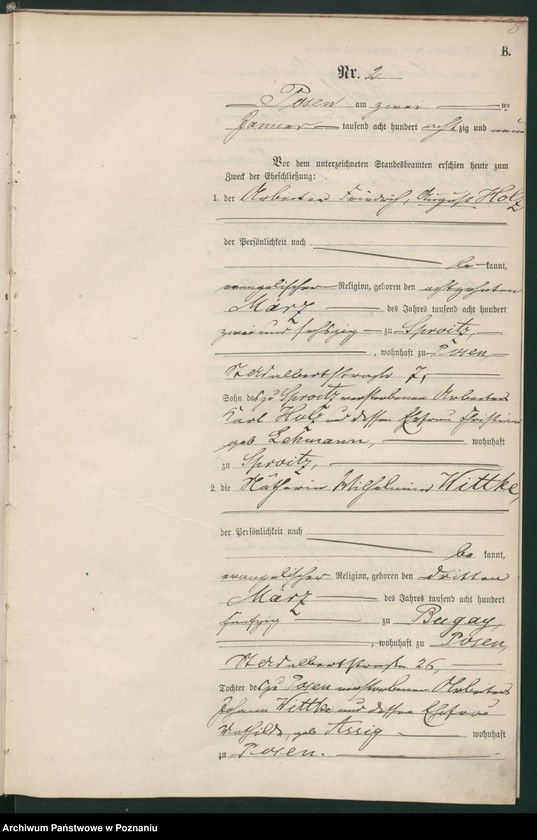 B.
Nr. 2
Posen am zwei ten
Januar tausend acht hundert achtzig und neun
Vor dem unterzeichneten Standesbeamten erschien heute zum
Zweck der Eheschließung:
1. der Arbeiter Friedrich, August Holz
der Persönlichkeit nach
be kannt,
evangelischer Religion, geboren den achtzehnten
März des Jahres tausend acht hundert
zwei und sechszig zu Sproitz,
, wohnhaft zu Posen,
St. Adalbertstraße 7,
Sohn des zu Sproitz verstorbenen Arbeiters
Karl Holz und dessen Ehefrau Christiane
geb. Lehmann, wohnhaft
zu Sproitz,
2. die Näherin Wilhelmine Wittke,
der Persönlichkeit nach
be kannt,
evangelischer Religion, geboren den dritten
März des Jahres tausend acht hundert
fünfzig zu Bugay,
, wohnhaft zu Posen,
St. Adalbertstraße 26,
Tochter des zu Posen verstorbenen Arbeiters
Johann Wittke und dessen Ehefrau
Mathilde, geb. Assig wohnhaft
zu Posen.
Archiwum Państwowe w Poznaniu